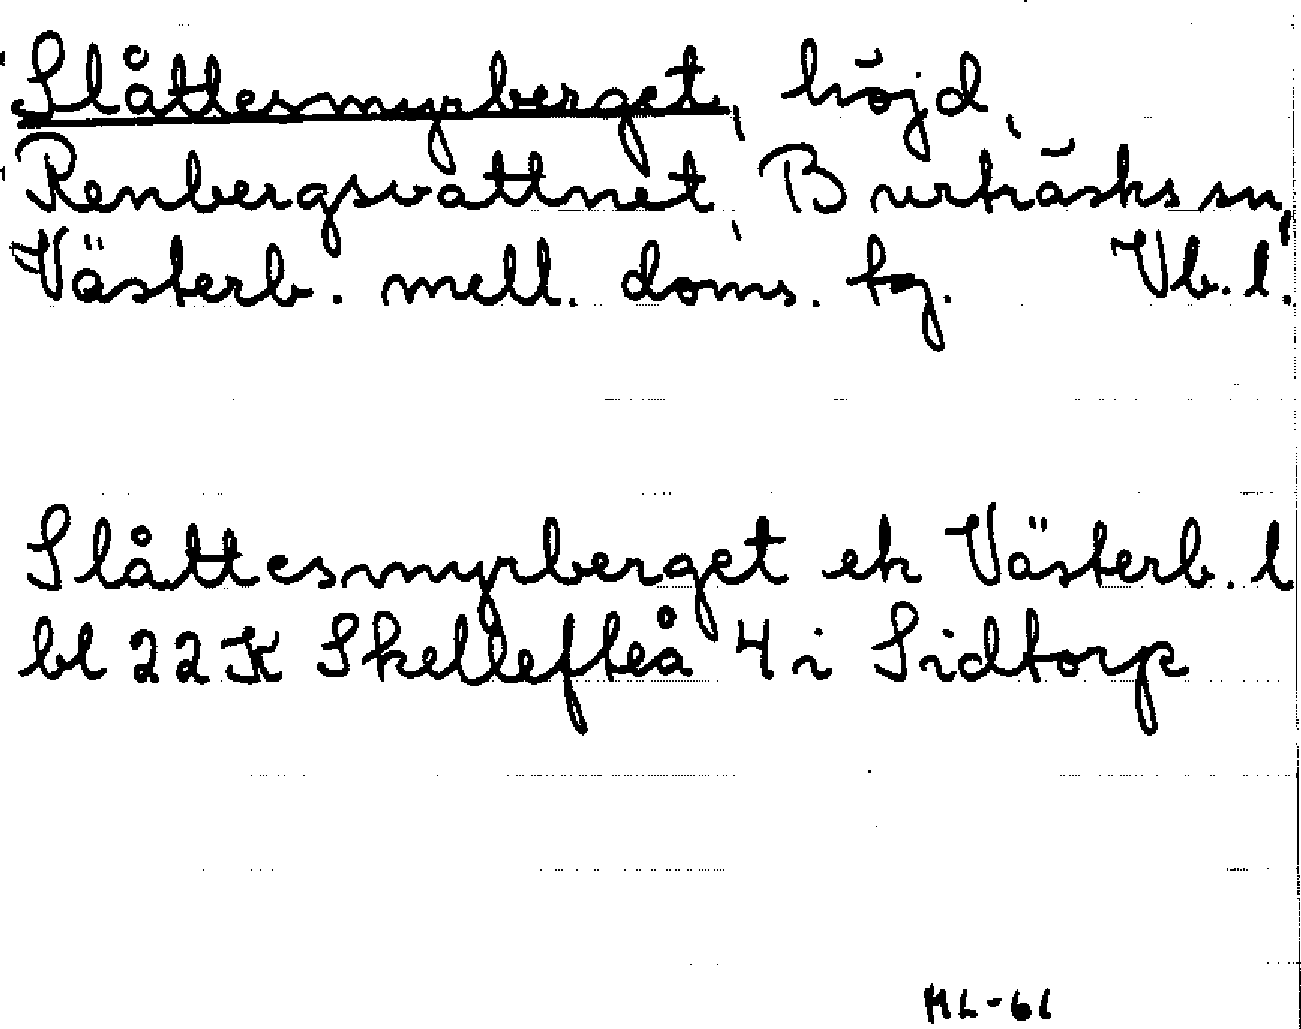 Slåttesmyrberget, höjd,
Renbergsvattnet, Burträsks sn,
Västerb. mell. doms. tg. Vb. l.
Slåttesmyrberget ek Västerb. l
bl 22K Skellefteå 4 i Sidtorp
ML-61